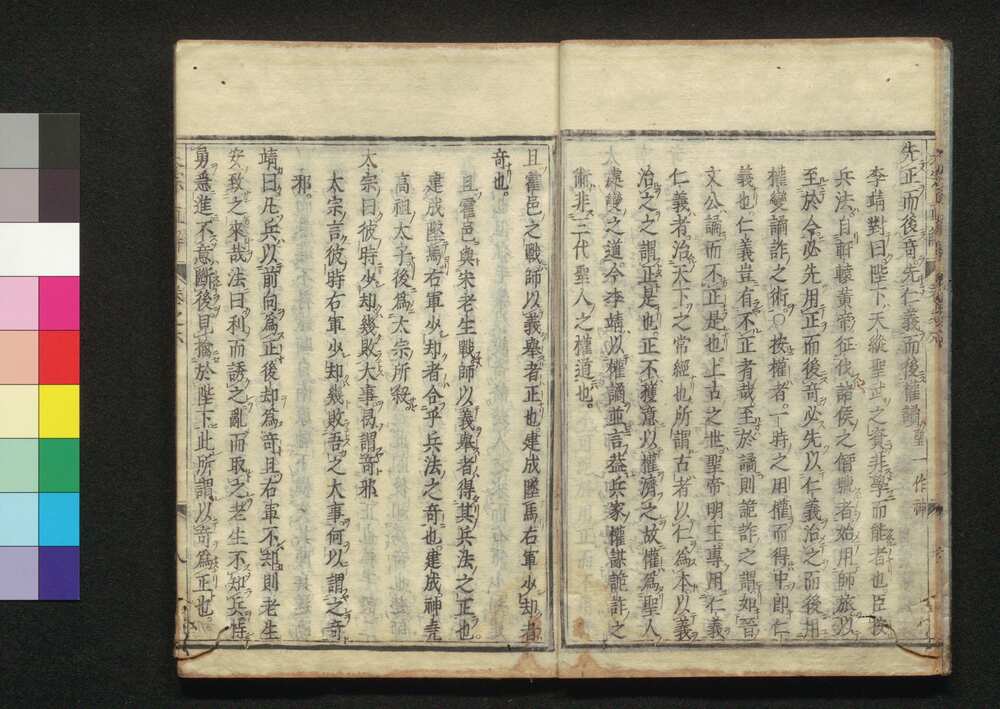 先正而後奇先仁義而後權譎聖一作神
李靖對曰陛下天縱聖武之資非學而能者也臣按
兵法自軒轅黃帝征伐諸侯之僭亂者始用師旅以
至於今必先用正而後奇必先以仁義治之而後用
權變譎詐之術○按權者一時之用權而得中即仁
義也仁義豈有不正者哉至於譎則詭詐之謂如晉
文公譎而不正是也上古之世聖帝明王專用仁義
仁義者治天下之常經也所謂古者以仁爲本以義
治之之謂正是也正不獲意以權濟之故權爲聖人
處變之道今李靖以權譎並言葢兵家權謀詭詐之
術非三代聖人之權道也
且霍邑之戰師以義舉者正也建成墜馬右軍少却者
奇也
且霍邑與宋老生戰師以義舉者得其兵法之正也
建成墜馬右軍少却者合乎兵法之奇也建成神堯
高祖太子後爲太宗所殺
太宗曰彼時少却幾敗大事曷謂奇邪
太宗言彼時右軍少却幾敗吾之大事何以謂之奇
邪
靖曰凡兵以前向爲正後却爲奇且右軍不却則老生
安致之來哉法曰利而誘之亂而取之老生不知兵恃
勇急進不意斷後見擒於陛下此所謂以奇爲正也